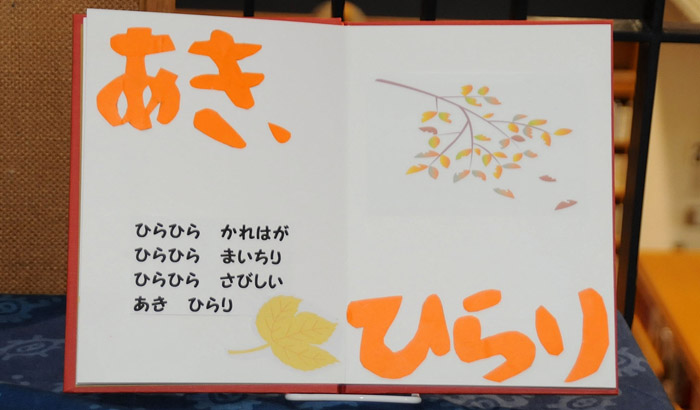 あき、
ひらひら　かれはが
ひらひら　まいちり
ひらひら　さびしい
あき　ひらり
ひらり